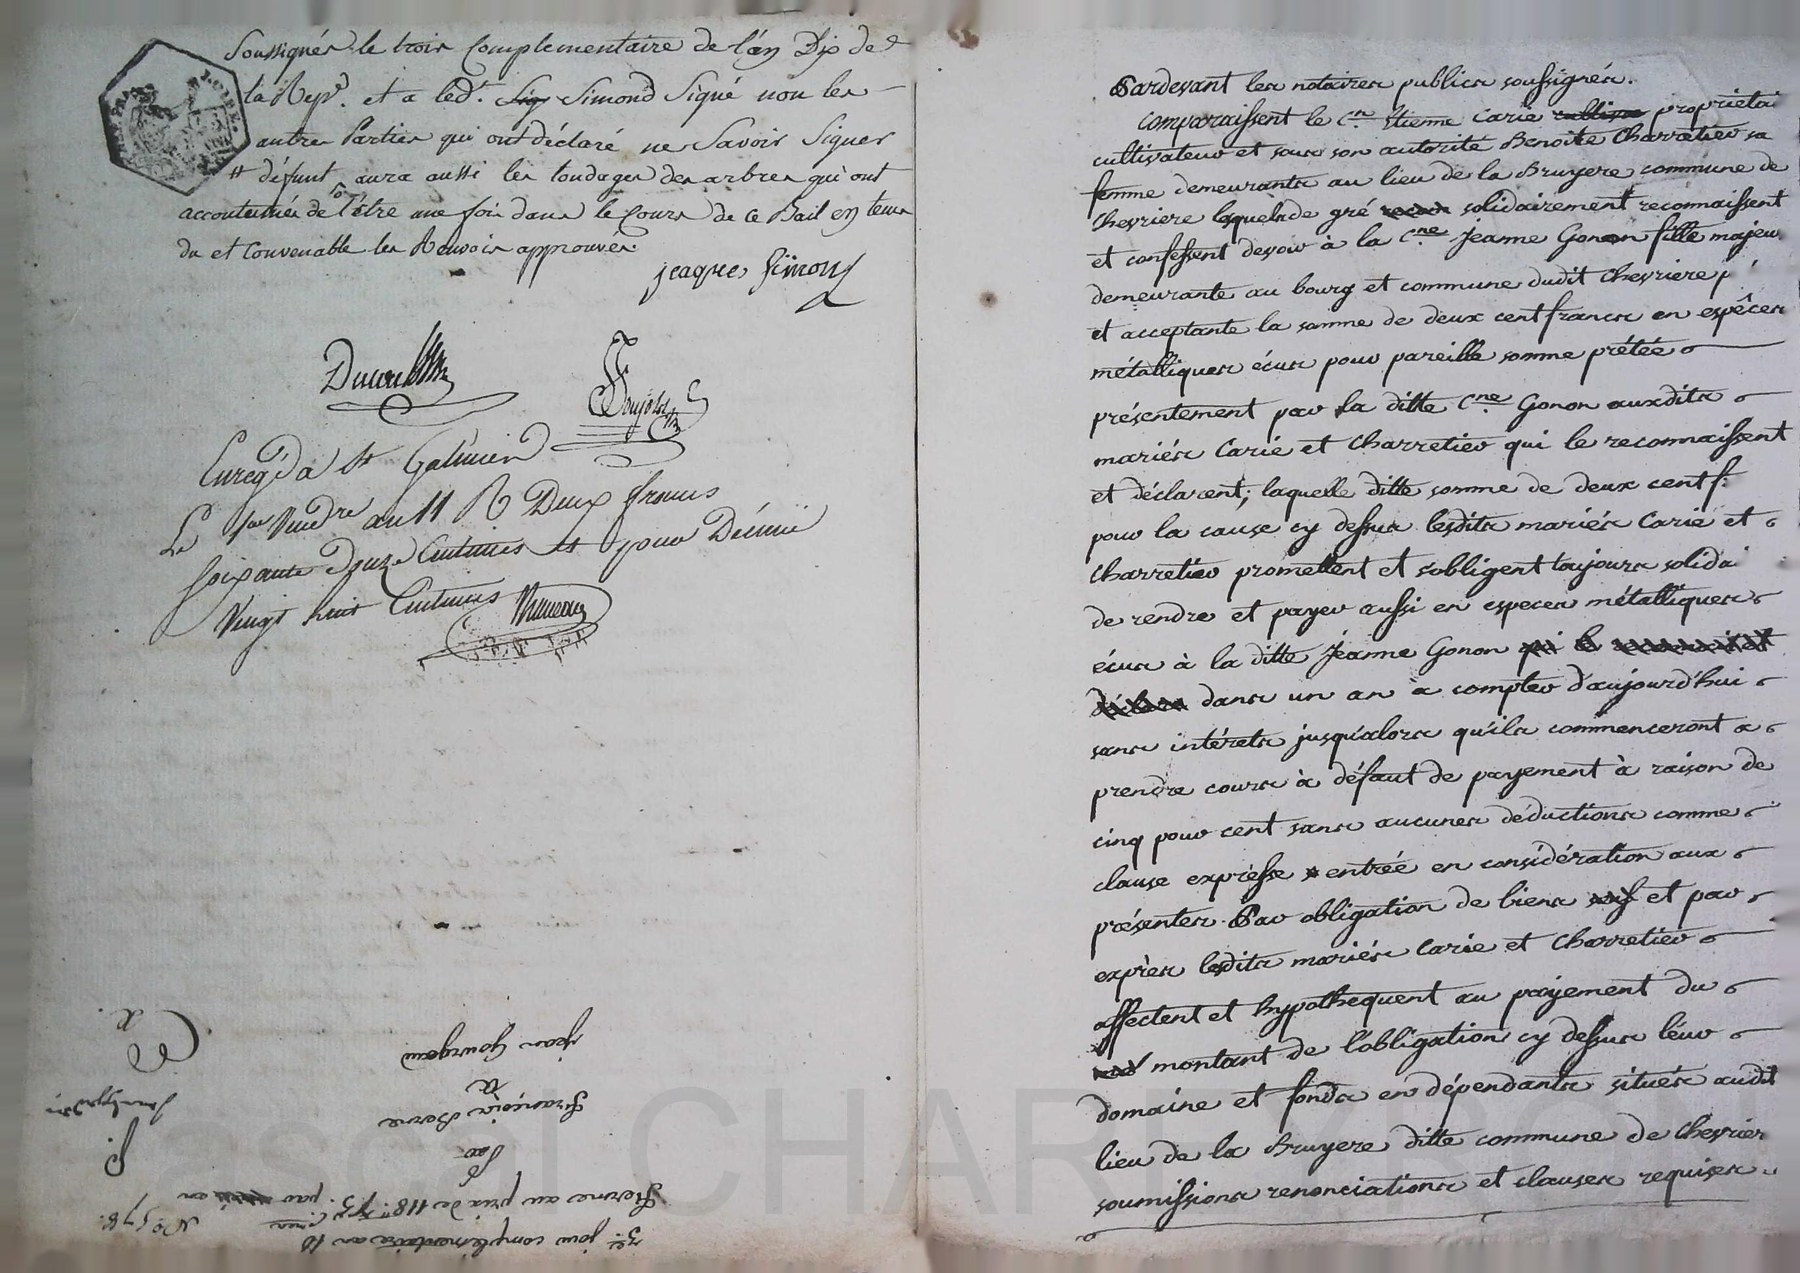 Soussignés le trois Complementaire de l'an Dix de
la Rep. et a led. Simond Signé non les
autres Parties qui ont déclaré ne Savoir Signer
défunt aura aussi les tondages des arbres qui ont
accoutumés de l'être une fois dans le Cours de ce Bail en tems
du et Convenable les Renvois approuvés.
jeaques Simond
Enreg. à St Galmier
Le 1er Vendre an 11 R Deux francs
soixante Douze Centimes et pour Décime
Vingt huit Centimes
jean Gourgeau
à
François Berne
par
ferme au prix de 118 par
3e jour complémentaire an 10
No 578
Pardevant les notaires publics soussignés.
comparaissent le Cen Etienne Carie proprietai
cultivateur et sous son autorité Benoite Charretier sa
femme demeurants au lieu de la Bruyere commune de
Chevriere lesquels de gré solidairement reconnaissent
et confessent devoir à la Cne Jeanne Gonon fille majeu
demeurante au bourg et commune dudit Chevriere
et acceptante la somme de deux cent francs en espêces
métalliques écus pour pareille somme prêtée
présentement par la ditte Cne Gonon auxdits
mariés Carie et Charretier qui le reconnaissent
et déclarent; laquelle ditte somme de deux cent f.
pour la cause cy dessus lesdits mariés Carie et
Charretier promettent et s'obligent toujours solidai
de rendre et payer aussi en especes métalliques
écus à la ditte Jeanne Gonon qui le reconnaissent
dans un an a compter d'aujourd'hui
sans intérets jusqu'alors qu'ils commenceront a
prendre cours à défaut de payement à raison de
cinq pour cent sans aucunes déductions comme
clause expresse entrée en considération aux
présentes. Par obligation de biens et par
exprès lesdits mariés Carie et Charretier
affectent et hypothequent au payement du
montant de l'obligation cy dessus leur
domaine et fonds en dépendants situés audit
lieu de la Bruyere ditte commune de Chevrier
soumissions renonciations et clauses requises